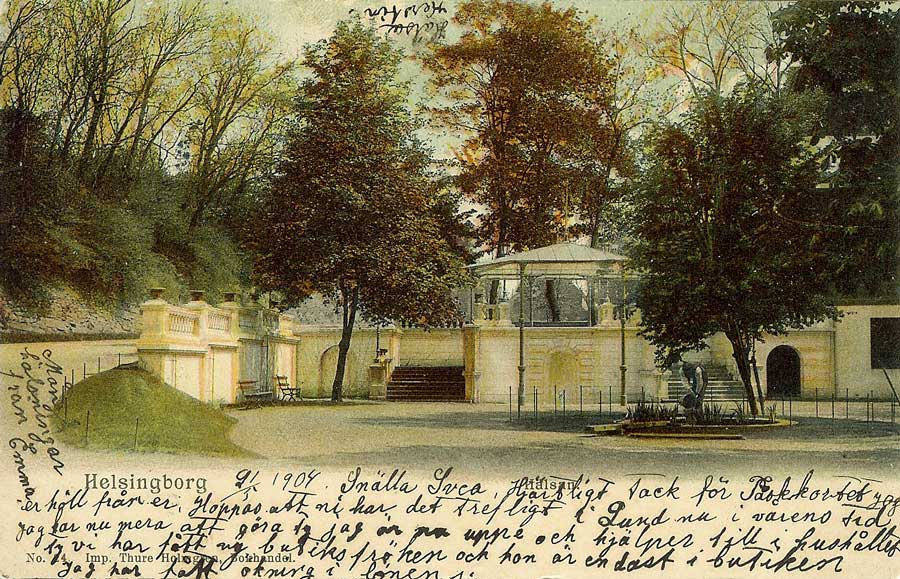 Hälsa
Kerstin.
Helsingborg
Hälsan.
9/1 1904. Snälla Svea, Hjärtligt Tack för Påskkortet jag
er höll från er. Hoppas att ni har det trefligt i Lund nu i vårens tid
Jag har nu mera att göra ty jag är nu uppe och hjälper till i hushållet
ty vi har fått ny butiksfröken och hon är endast i butiken
No. Imp. Thure Holmgren, Bokhandel.
Jag har fått ökning i lönen
Mång
hälsningar
från Emma